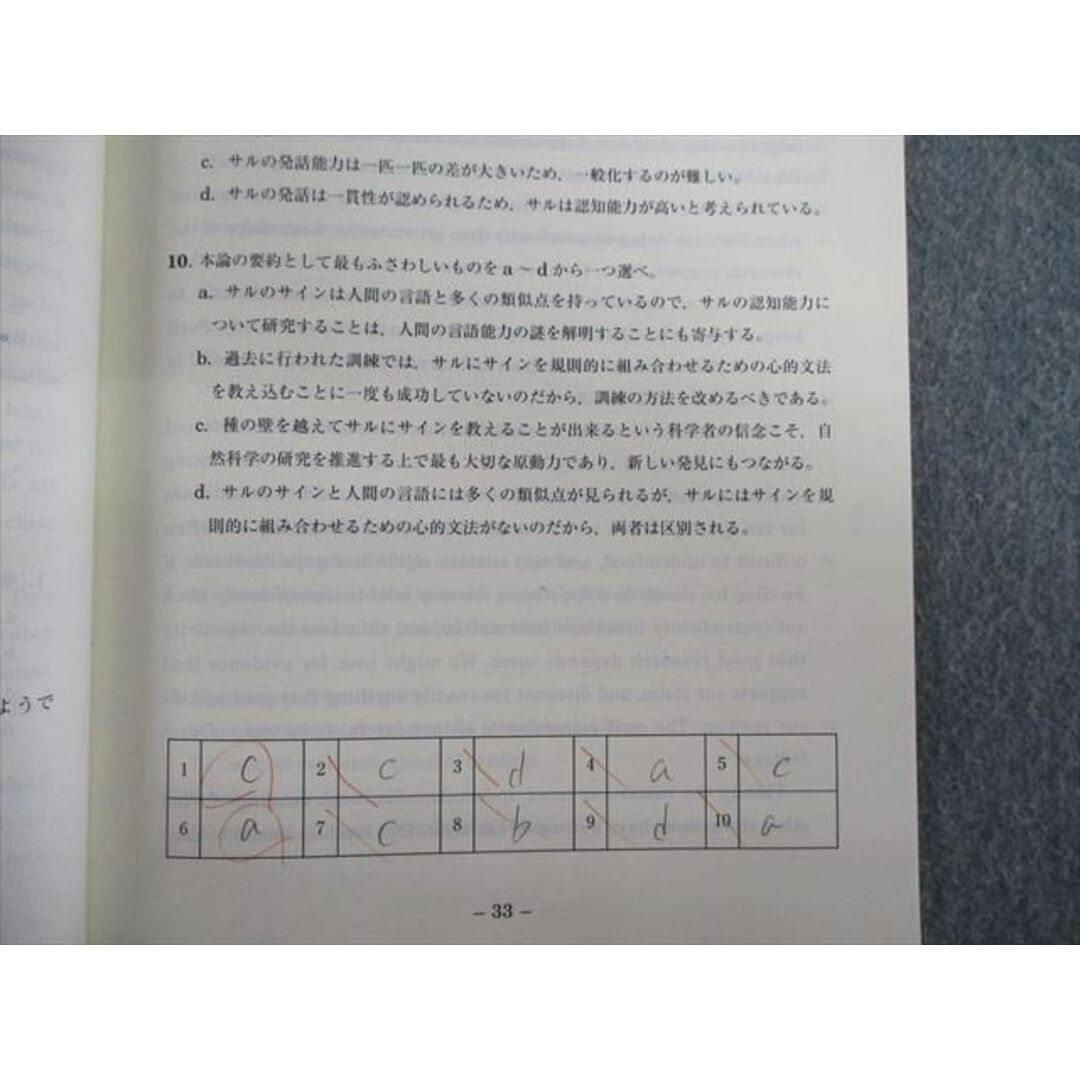 c. サルの発話能力は一匹一匹の差が大きいため，一般化するのが難しい。
d. サルの発話は一貫性が認められるため，サルは認知能力が高いと考えられている。
10. 本論の要約として最もふさわしいものをa～dから一つ選べ。
a. サルのサインは人間の言語と多くの類似点を持っているので，サルの認知能力に
ついて研究することは，人間の言語能力の謎を解明することにも寄与する。
b. 過去に行われた訓練では，サルにサインを規則的に組み合わせるための心的文法
を教え込むことに一度も成功していないのだから，訓練の方法を改めるべきである。
c. 種の壁を越えてサルにサインを教えることが出来るという科学者の信念こそ，自
然科学の研究を推進する上で最も大切な原動力であり，新しい発見にもつながる。
d. サルのサインと人間の言語には多くの類似点が見られるが，サルにはサインを規
則的に組み合わせるための心的文法がないのだから，両者は区別される。
ようで
1 c 2 c 3 d 4 a 5 c
6 a 7 c 8 b 9 d 10 a
– 33 –